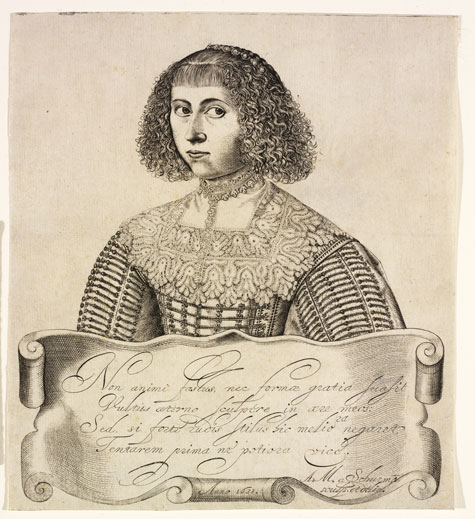 Non animi fastus, nec formæ gratia suasit
Vultus æterno sculpere in ære meos:
Sed, si forte rudis stilus hic meliora negaret,
Tentarem prima ne potiora vice.
A. M. à Schurman
sculp. et delin.
Anno 1633.